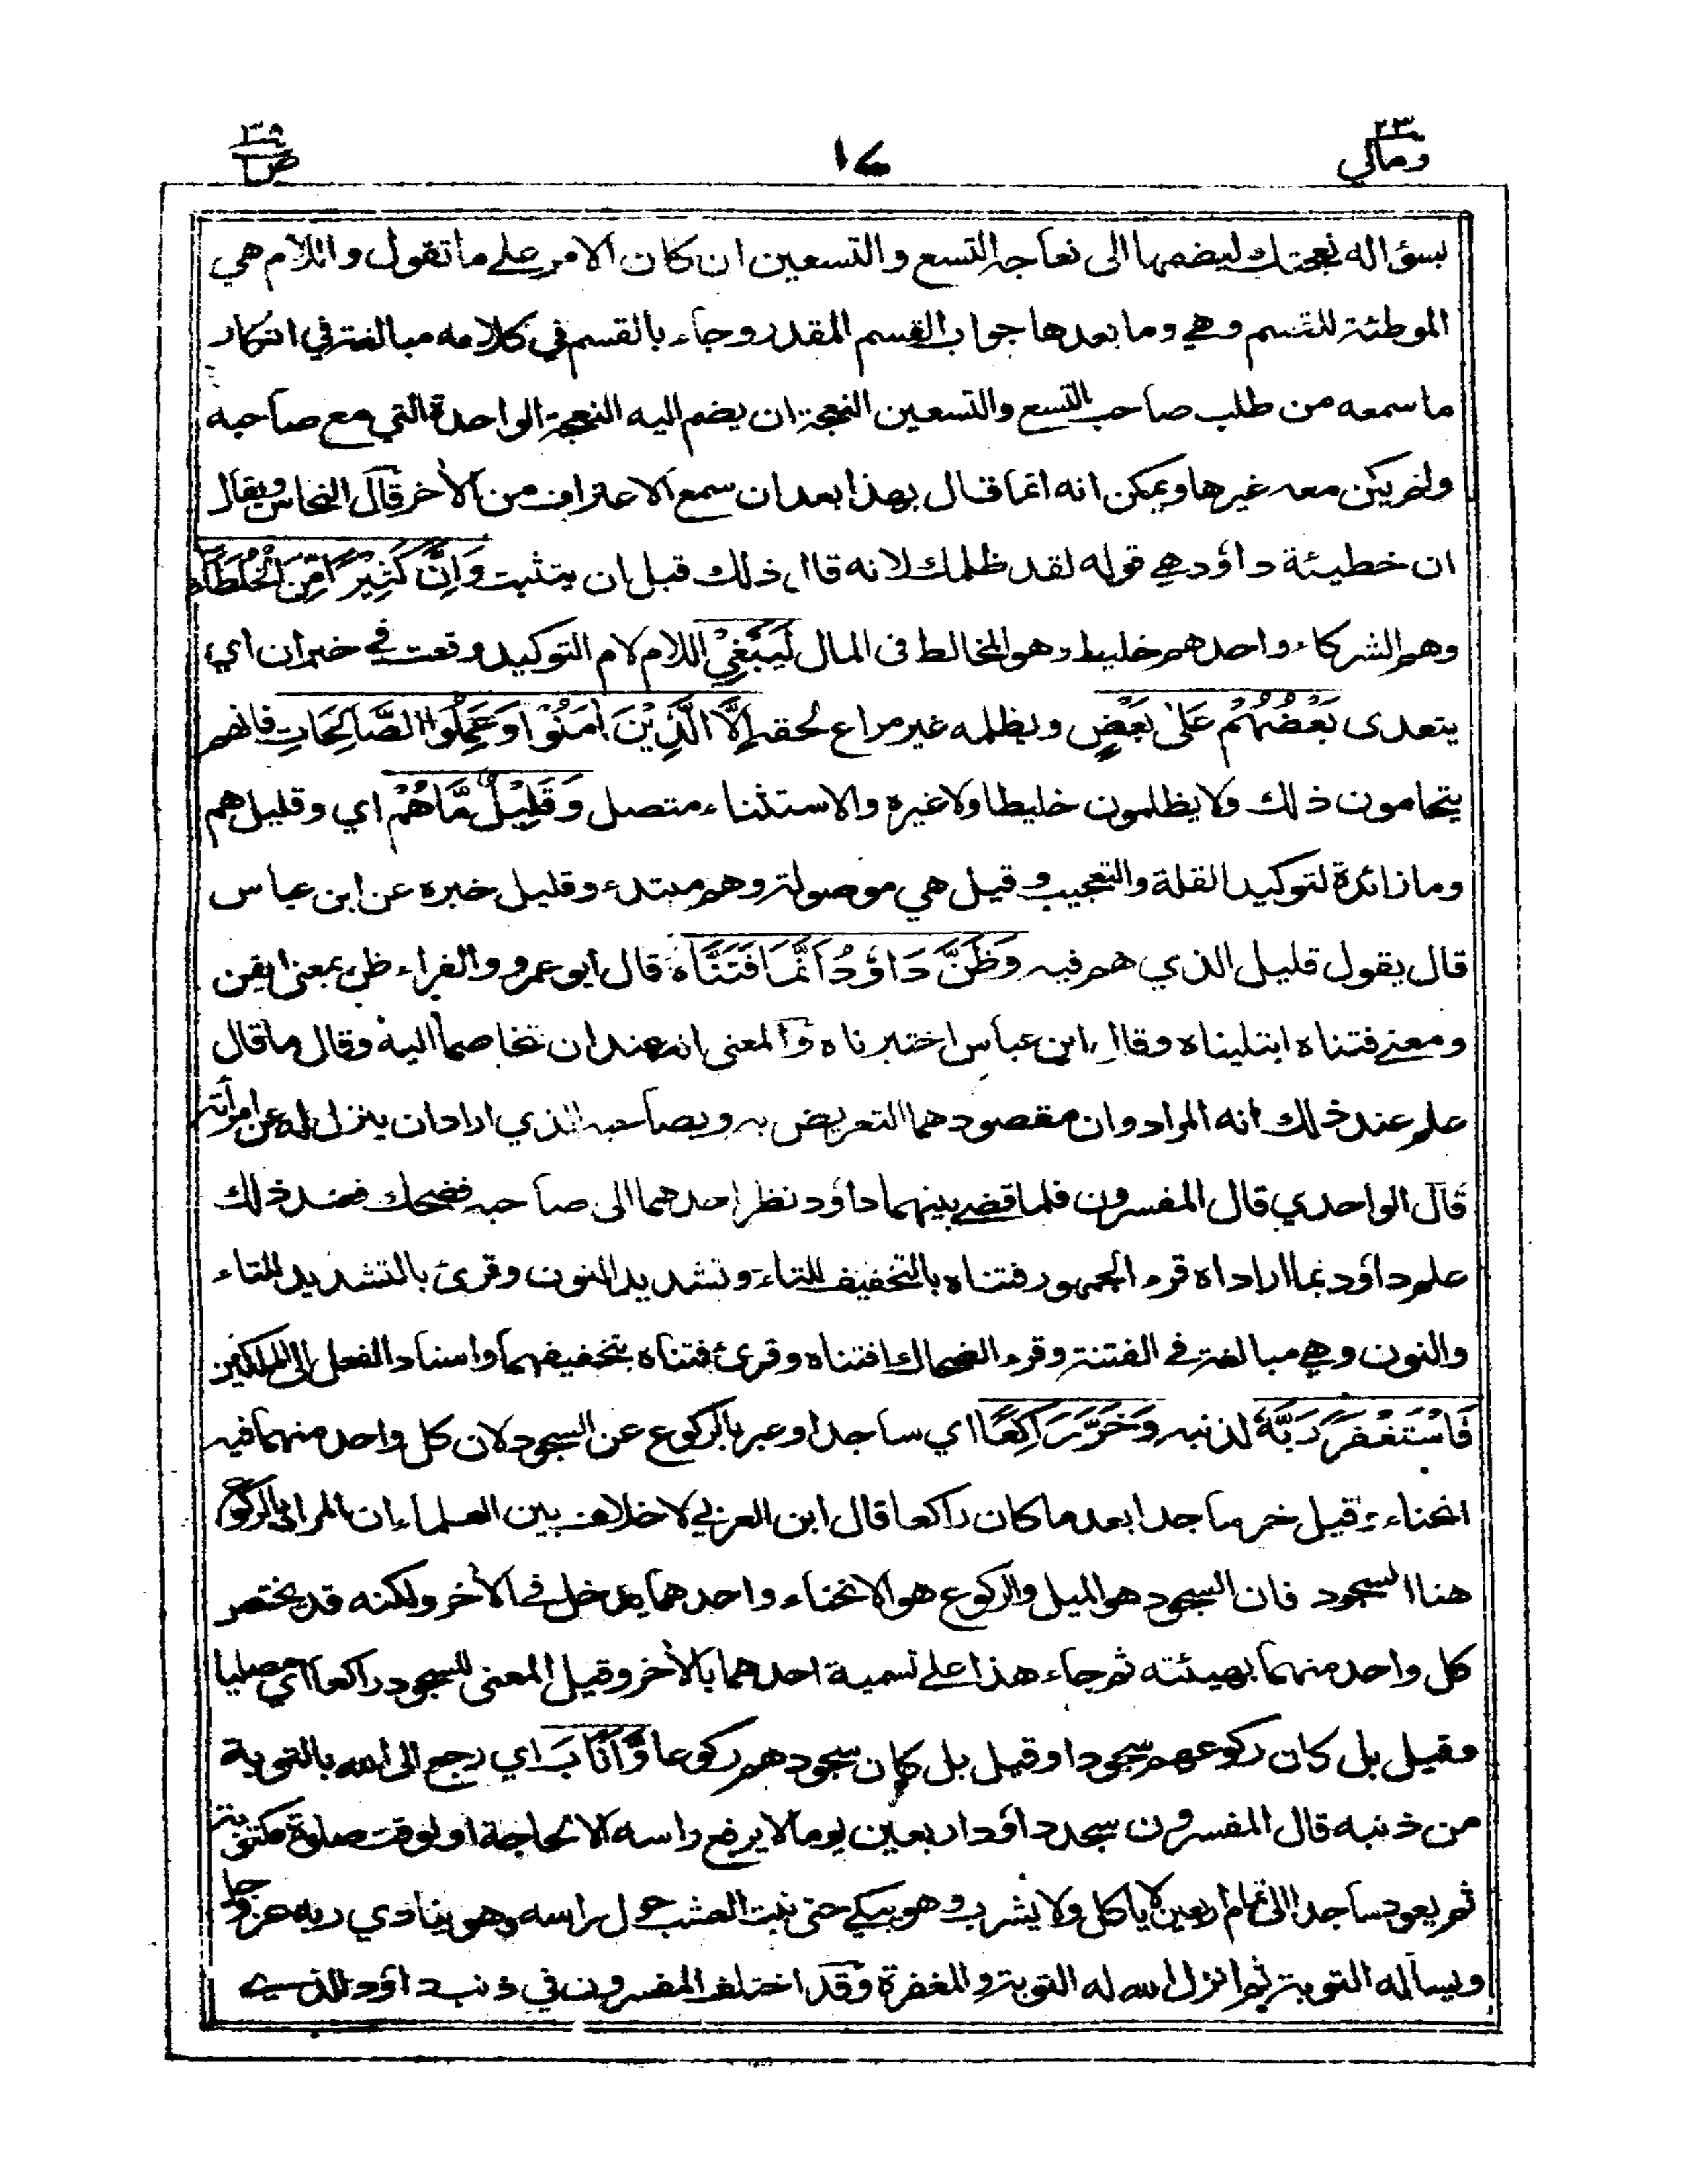 ومالي ٢٣
١٧
ص ٣٨
بسؤاله نعجتك ليضمها الى نعاجه التسع والتسعين ان كان الامر على ما تقول واللام هي
الموطئة للقسم وهي وما بعدها جواب القسم المقدر وجاء بالقسم في كلامه مبالغة في انكار
ما سمعه من طلب صاحب التسع والتسعين النعجة ان يضم اليه النعجة الواحدة التي مع صاحبه
ولم يكن معه غيرها ويمكن انه انما قال بهذا بعد ان سمع الاعتراف من الأخر قال النحاس ويقال
ان خطيئة داؤد هي قوله لقد ظلمك لانه قال ذلك قبل ان يتثبت وَاِنَّ كَثِيْرًا مِّنَ الْخُلَطَآءِ
وهم الشركاء واحدهم خليط وهو المخالط فى المال لَيَبْغِيْ اللام لام التوكيد وقعت في خبر ان اي
يتعدى بَعْضُهُمْ عَلٰى بَعْضٍ ويظلمه غير مراع لحقه اِلَّا الَّذِيْنَ اٰمَنُوْا وَعَمِلُوا الصَّالِحَاتِ فانهم
يتحامون ذلك ولا يظلمون خليطا ولا غيره والاستثناء متصل وَقَلِيْلٌ مَّا هُمْ اي وقليل هم
وما زائدة لتوكيد القلة والتعجيب وقيل هي موصولة وهم مبتدء وقليل خبره عن ابن عباس
قال يقول قليل الذي هم فيه وَظَنَّ دَاوٗدُ اَنَّمَا فَتَنَّاهُ قال ابو عمرو والفراء ظن بمعنى ايقن
ومعنى فتناه ابتليناه وقال ابن عباس اختبرناه والمعنى انه عند ان تخاصما اليه وقال ما قال
علم عند ذلك انه المراد وان مقصودهما التعريض به وبصاحبه الذي اراد ان ينزل له عن امرأته
قال الواحدي قال المفسرون فلما قضى بينهما داؤد نظر احدهما الى صاحبه فضحك فعند ذلك
علم داؤد بما اراداه قرء الجمهور فتناه بالتخفيف للتاء وتشديد النون وقرئ بالتشديد للتاء
والنون وهي مبالغة في الفتنة وقرء الضحاك افتناه وقرئ فتناه بتخفيفهما واسناد الفعل الى الملكين
فَاسْتَغْفَرَ رَبَّهٗ لذنبه وَخَرَّ رَاكِعًا اي ساجدا وعبر بالركوع عن السجود لان كل واحد منهما فيه
انحناء وقيل خر ساجدا بعد ما كان راكعا قال ابن العربي لا خلاف بين العلماء ان المراد بالركوع
هنا السجود فان السجود هو الميل والركوع هو الانحناء واحدهما يدخل في الأخر ولكنه قد يختصر
كل واحد منهما بهيئته ثم جاء هذا على تسمية احدهما بالأخر وقيل المعنى للسجود راكعا اي مصليا
وقيل بل كان ركوعهم سجودا وقيل بل كان سجودهم ركوعا وَّاَنَابَ اي رجع الى الله بالتوبة
من ذنبه قال المفسرون سجد داؤد اربعين يوما لا يرفع راسه الا لحاجة او لوقت صلوة مكتوبة
ثم يعود ساجدا الى تمام اربعين لا ياكل ولا يشرب وهو يبكي حتى نبت العشب حول راسه وهو ينادي ربه عز وجل
ويساله التوبة ثم انزل الله له التوبة والمغفرة وقد اختلف المفسرون في ذنب داؤد الذي